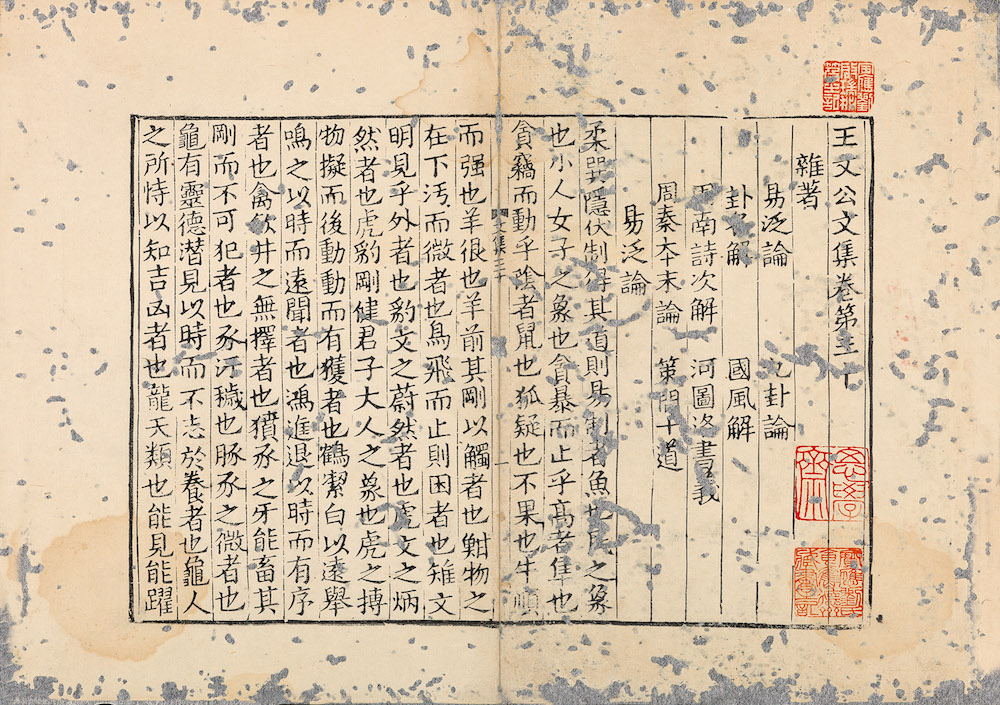 王文公文集卷第三十
雜著
易泛論 九卦論
卦名解 國風解
周南詩次解 河圖洛書義
周秦本末論 策問十道
易泛論
柔巽隱伏制得其道則易制者魚也民之象
也小人女子之象也貪暴而止乎高者隼也
貪竊而動乎陰者鼠也狐疑也不果也牛順
文集三十
而强也羊很也羊前其剛以觸者也鮒物之
在下汚而微者也鳥飛而止則困者也雉文
明見乎外者也豹文之蔚然者也虎文之炳
然者也虎豹剛健君子大人之象也虎之搏
物擬而後動動而有獲者也鶴潔白以遠舉
鳴之以時而遠聞者也鴻進退以時而有序
者也禽飲井之無擇者也豶豕之牙能畜其
剛而不可犯者也豕汙穢也豚豕之微者也
龜有靈德潛見以時而不志於養者也龜人
之所恃以知吉凶者也龍天類也能見能躍